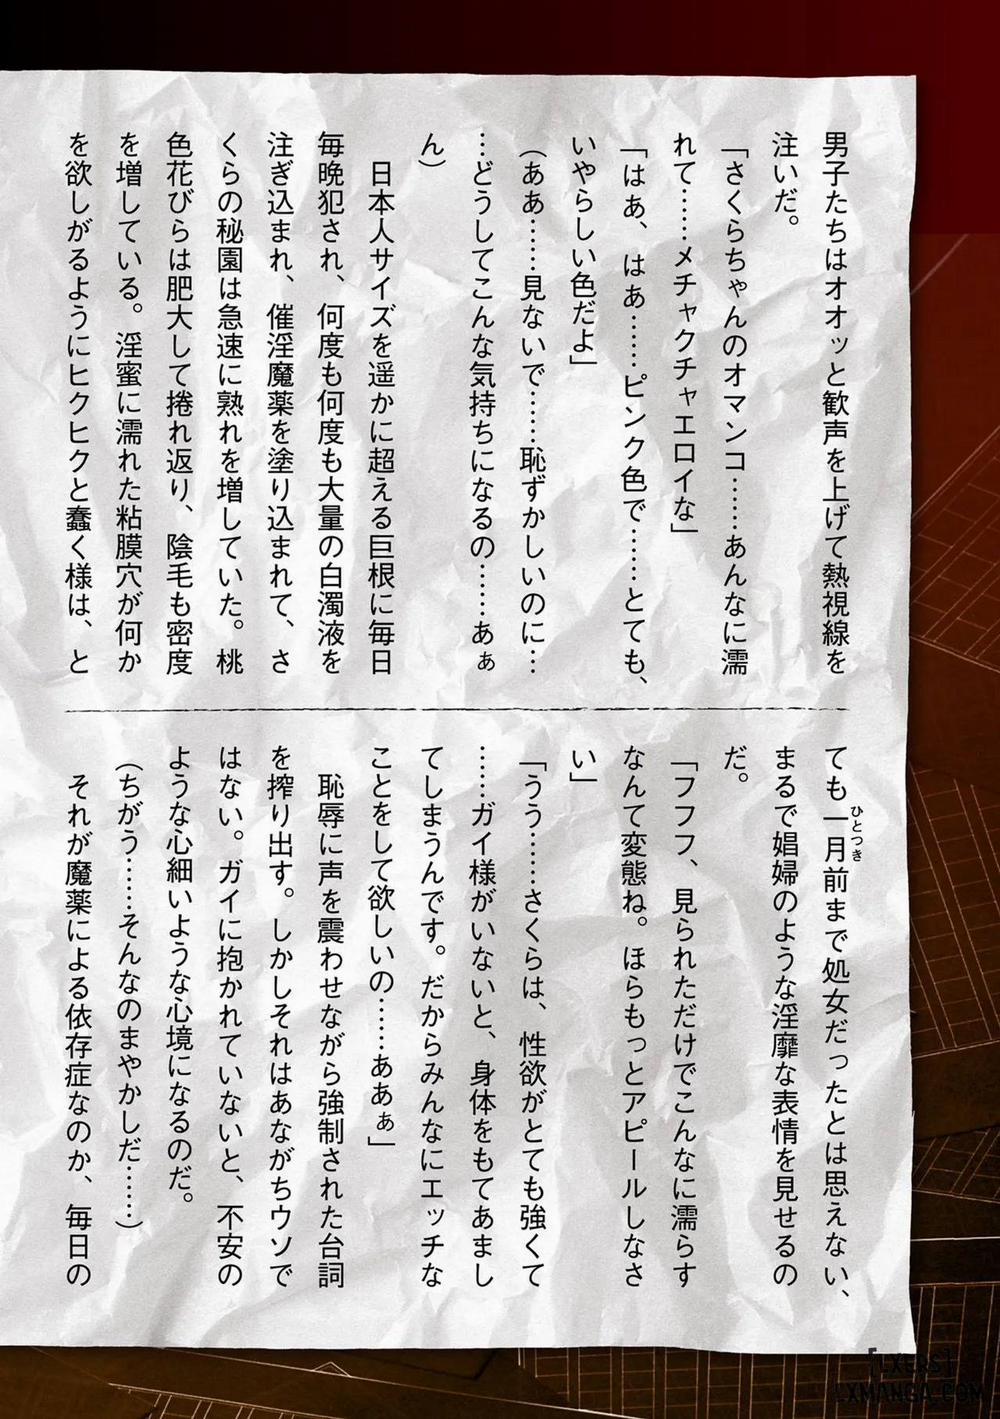 男子たちはオオッと歓声を上げて熱視線を
注いだ。
「さくらちゃんのオマンコ……あんなに濡
れて……メチャクチャエロイな」
「はあ、はあ……ピンク色で……とても、
いやらしい色だよ」
(ああ……見ないで……恥ずかしいのに…
…どうしてこんな気持ちになるの……あぁ
ん)
日本人サイズを遥かに超える巨根に毎日
毎晩犯され、何度も何度も大量の白濁液を
注ぎ込まれ、催淫魔薬を塗り込まれて、さ
くらの秘園は急速に熟れを増していた。桃
色花びらは肥大して捲れ返り、陰毛も密度
を増している。淫蜜に濡れた粘膜穴が何か
を欲しがるようにヒクヒクと蠢く様は、と
ても一月前まで処女だったとは思えない、
ひとつき
まるで娼婦のような淫靡な表情を見せるの
だ。
「フフフ、見られただけでこんなに濡らす
なんて変態ね。ほらもっとアピールしなさ
い」
「うう……さくらは、性欲がとても強くて
……ガイ様がいないと、身体をもてあまし
てしまうんです。だからみんなにエッチな
ことをして欲しいの……ああぁ」
恥辱に声を震わせながら強制された台詞
を搾り出す。しかしそれはあながちウソで
はない。ガイに抱かれていないと、不安の
ような心細いような心境になるのだ。
(ちがう……そんなのまやかしだ……)
それが魔薬による依存症なのか、毎日の
[LXERS]
LXMANGA.COM